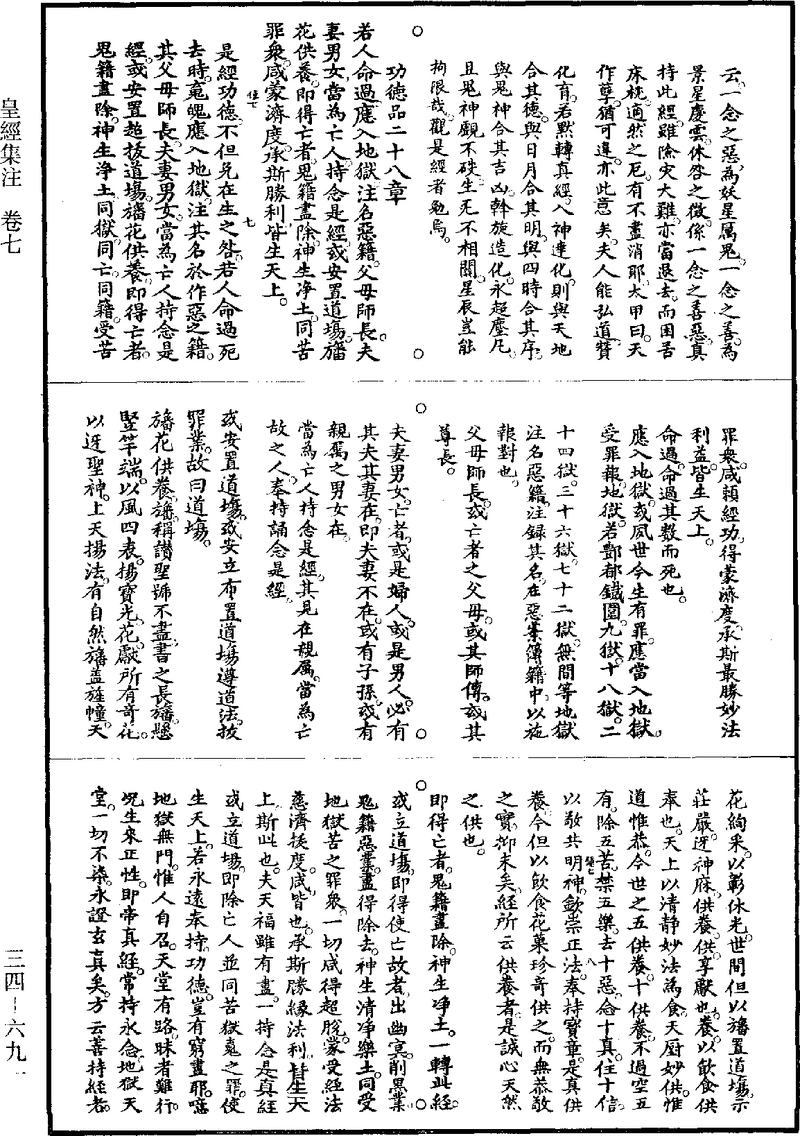 皇經集注 卷七
三四—六九一
云一念之惡為妖星厲鬼一念之善為
景星慶雲休咎之徵係一念之善惡真
持此經雖除灾大難亦當退去而困苦
床枕適然之厄有不盡消耶太甲曰天
作孽猶可違亦此意矣夫人能弘道贊
化育若默轉真經入神達化則與天地
合其德與日月合其明與四時合其序
與鬼神合其吉凶斡旋造化永超塵凡
且鬼神覷不破生死不相關星辰豈能
拘限哉觀是經者勉焉
功德品二十八章
若人命過應入地獄注名惡籍父母師長夫
妻男女當為亡人持念是經或安置道場旛
花供養即得亡者鬼籍盡除神生淨土同苦
罪衆咸蒙濟度承斯勝利皆生天上
是經功德不但免在生之咎若人命過死
去時䰟魄應入地獄注其名於作惡之籍
其父母師長夫妻男女當為亡人持念是
經或安置超拔道場旛花供養即得亡者
鬼籍盡除神生淨土同獄同亡同籍受苦
罪衆咸賴經功得蒙濟度承斯最勝妙法
利益皆生天上
命過命過其數而死也
應入地獄或夙世今生有罪應當入地獄
受罪報地獄若酆都鐵圍九獄十八獄二
十四獄三十六獄七十二獄無間等地獄
注名惡籍注録其名在惡業簿籍中以施
報對也
父母師長或亡者之父母或其師傳或其
尊長
夫妻男女亡者或是婦人或是男人必有
其夫其妻在即夫妻不在或有子孫或有
親属之男女在
當為亡人持念是經其見在親属當為亡
故之人奉持誦念是經
或安置道場或安立布置道場導道法拔
罪業故曰道場
旛花供養旛稱讚聖號不盡書之長旛懸
竪竿端以風四表揚寶光花獻所有奇花
以迓聖神上天揚法有自然旛蓋旌幢天
花絢采以彰休光世間但以旛置道場示
莊嚴迓神庥供養供享獻也養以飲食供
奉也天上以清静妙法為食天厨妙供惟
道惟恭今世之五供養十供養不過空五
有除五苦禁五樂去十惡念十真住十信
以敬共明神歆崇正法奉持寶章是真供
養今但以飲食花菓珍奇供之而無恭敬
之實抑末矣經所云供養者是誠心天然
之供也
即得亡者鬼籍盡除神生淨土一轉此經
或立道場即得使亡故者出幽冥削黑業
鬼籍惡業盡得除去神生清淨樂土同受
地獄苦之罪衆一切咸得超脫蒙受經法
慈濟援度咸皆也承斯勝緣法利皆生天
上斯此也夫天福雖有盡一持念是真經
或立道場即除亡人並同苦獄䰟之罪使
生天上若永遠奉揲功德豈有窮盡耶噫
地獄無門惟人自召天堂有路昧者難行
况生來正性即帝真經常持永念地獄天
堂一切不染永證玄真矣方云善持經者